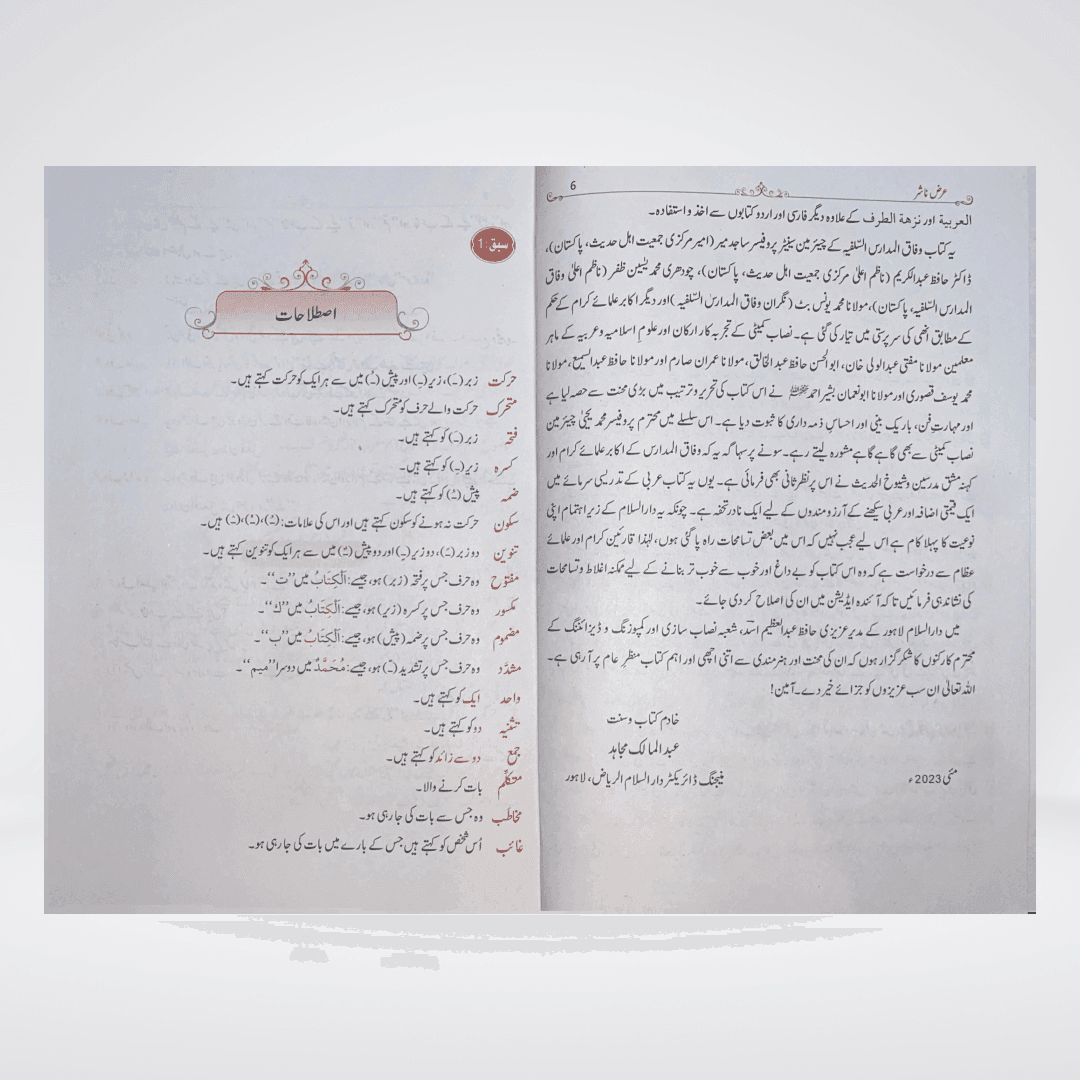 عرض ناشر
6
العربية اور نزهة الطرف کے علاوہ دیگر فارسی اور اردو کتابوں سے اخذ و استفادہ۔
یہ کتاب وفاق المدارس السلفیہ کے چیئرمین سینیٹر پروفیسر ساجد میر (امیر مرکزی جمعیت اہل حدیث، پاکستان)،
ڈاکٹر حافظ عبدالکریم (ناظم اعلیٰ مرکزی جمعیت اہل حدیث، پاکستان)، چودھری محمد یٰسین ظفر (ناظم اعلیٰ وفاق
المدارس السلفیہ، پاکستان)، مولانا محمد یونس بٹ (نگران وفاق المدارس السلفیہ) اور دیگر اکابر علمائے کرام کے حکم
کے مطابق انھی کی سرپرستی میں تیار کی گئی ہے۔ نصاب کمیٹی کے تجربہ کار ارکان اور علوم اسلامیہ و عربیہ کے ماہر
معلمین مولانا مفتی عبدالولی خان، ابوالحسن حافظ عبدالخالق، مولانا عمران صارم اور مولانا حافظ عبدالسمیع، مولانا
محمد یوسف قصوری اور مولانا ابونعمان بشیر احمد نے اس کتاب کی تحریر و ترتیب میں بڑی محنت سے حصہ لیا ہے
اور مہارتِ فن، باریک بینی اور احساسِ ذمہ داری کا ثبوت دیا ہے۔ اس سلسلے میں محترم پروفیسر محمد یحییٰ چیئرمین
نصاب کمیٹی سے بھی گاہے گاہے مشورہ لیتے رہے۔ سونے پر سہاگہ یہ کہ وفاق المدارس کے اکابر علمائے کرام اور
کہنہ مشق مدرسین و شیوخ الحدیث نے اس پر نظر ثانی بھی فرمائی ہے۔ یوں یہ کتاب عربی کے تدریسی سرمائے میں
ایک قیمتی اضافہ اور عربی سیکھنے کے آرزومندوں کے لیے ایک نادر تحفہ ہے۔ چونکہ یہ دارالسلام کے زیر اہتمام اپنی
نوعیت کا پہلا کام ہے اس لیے عجب نہیں کہ اس میں بعض تسامحات راہ پا گئی ہوں، لہٰذا قارئین کرام اور علمائے
عظام سے درخواست ہے کہ وہ اس کتاب کو بے داغ اور خوب سے خوب تر بنانے کے لیے ممکنہ اغلاط و تسامحات
کی نشاندہی فرمائیں تاکہ آئندہ ایڈیشن میں ان کی اصلاح کر دی جائے۔
میں دارالسلام لاہور کے مدیر عزیزی حافظ عبدالعظیم اسد، شعبہ نصاب سازی اور کمپوزنگ و ڈیزائننگ کے
محترم کارکنوں کا شکر گزار ہوں کہ ان کی محنت اور ہنرمندی سے اتنی اچھی اور اہم کتاب منظرِ عام پر آ رہی ہے۔
اللہ تعالیٰ ان سب عزیزوں کو جزائے خیر دے۔ آمین!
خادم کتاب و سنت
عبدالمالک مجاہد
مئی 2023ء
مینجنگ ڈائریکٹر دارالسلام الریاض، لاہور
سبق: 1
اصطلاحات
حرکت زبر (ـَ)، زیر (ـِ) اور پیش (ـُ) میں سے ہر ایک کو حرکت کہتے ہیں۔
متحرک حرکت والے حرف کو متحرک کہتے ہیں۔
فتحہ زبر (ـَ) کو کہتے ہیں۔
کسرہ زیر (ـِ) کو کہتے ہیں۔
ضمہ پیش (ـُ) کو کہتے ہیں۔
سکون حرکت نہ ہونے کو سکون کہتے ہیں اور اس کی علامات: ہیں۔
تنوین دو زبر (ـً)، دو زیر (ـٍ) اور دو پیش (ـٌ) میں سے ہر ایک کو تنوین کہتے ہیں۔
مفتوح وہ حرف جس پر فتحہ (زبر) ہو، جیسے: اَلْكِتَابُ میں ”ت“۔
مکسور وہ حرف جس پر کسرہ (زیر) ہو، جیسے: اَلْكِتَابُ میں ”ك“۔
مضموم وہ حرف جس پر ضمہ (پیش) ہو، جیسے: اَلْكِتَابُ میں ”ب“۔
مشدّد وہ حرف جس پر تشدید (ـّ) ہو، جیسے: مُحَمَّدٌ میں دوسرا ”میم“۔
واحد ایک کو کہتے ہیں۔
تثنیہ دو کو کہتے ہیں۔
جمع دو سے زائد کو کہتے ہیں۔
متکلّم بات کرنے والا۔
مخاطَب وہ جس سے بات کی جا رہی ہو۔
غائب اُس شخص کو کہتے ہیں جس کے بارے میں بات کی جا رہی ہو۔